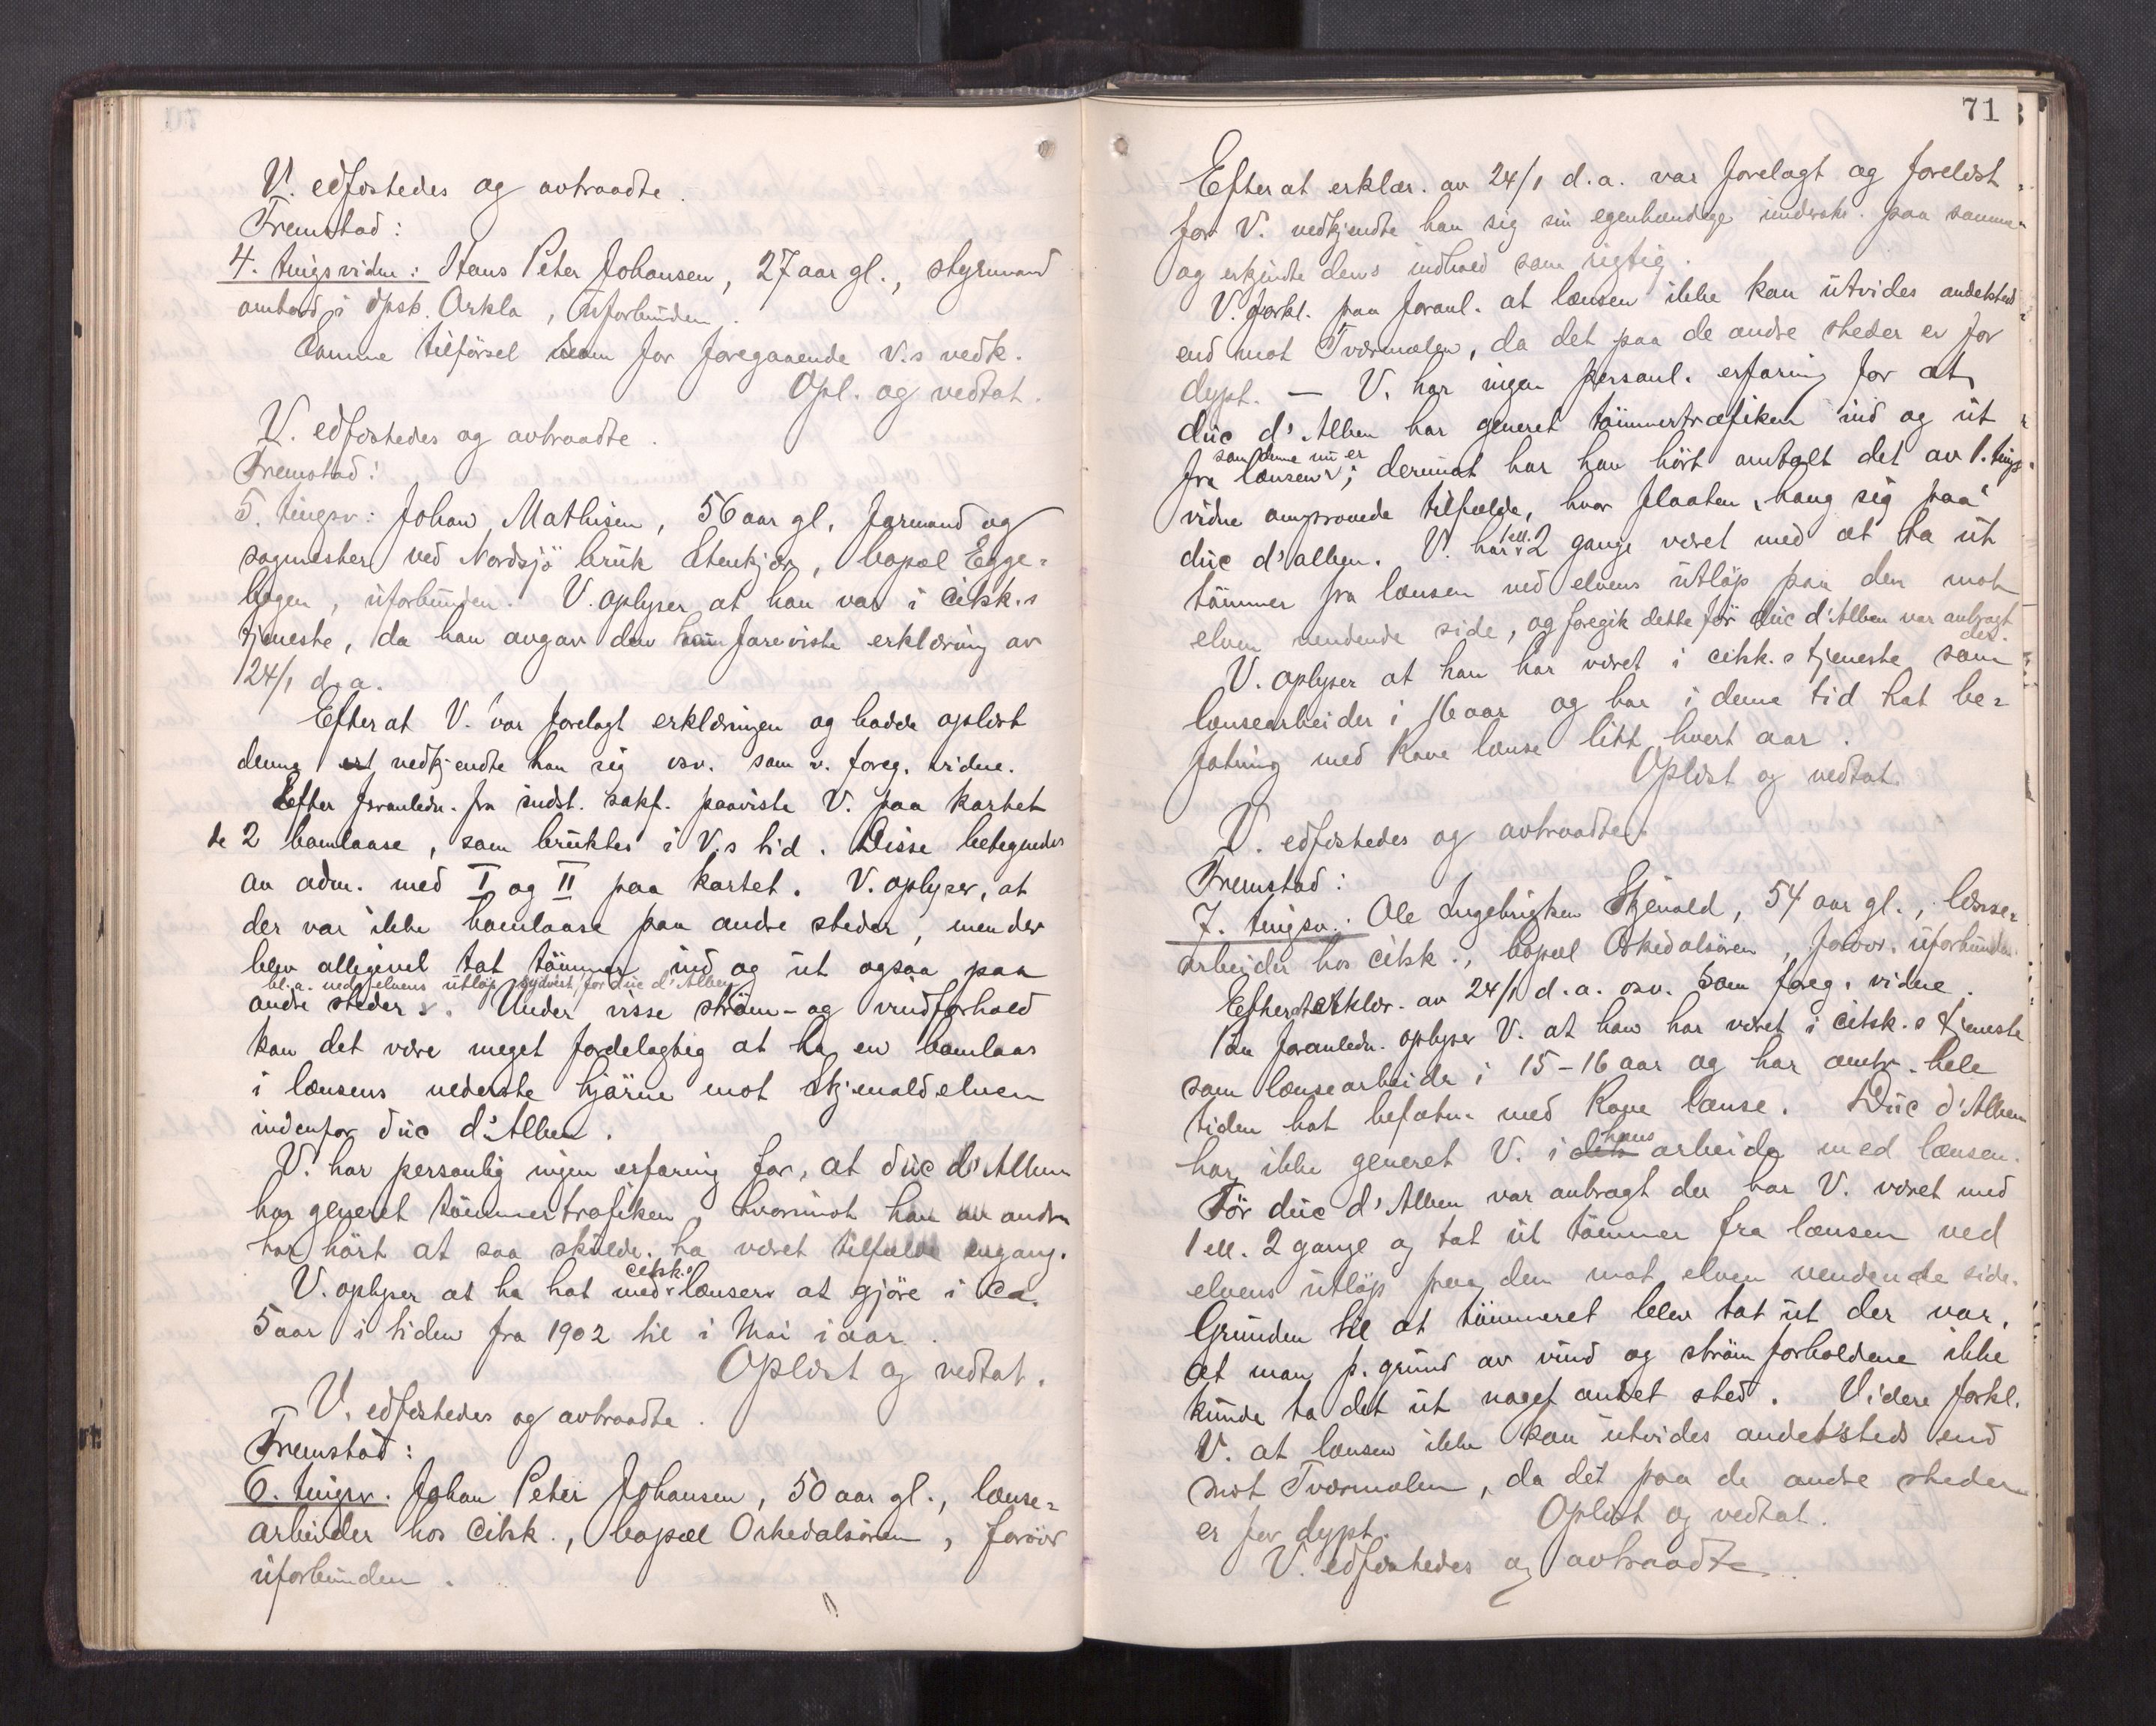 V. edfæstedes og avtraadte.
Fremstod:
4. tingsvidne: Hans Peter Johansen, 27 aar gl., styrmand
ombord i dpsk. Orkla, uforbunden.
Samme tilførsel som for foregaaende V.s vedk.
Opl. og vedtat.
V. edfæstedes og avtraadte.
Fremstod:
5. tingsv: Johan Mathisen, 56 aar gl, formand og
sagmester ved Nordsjö bruk Stenkjær, bopæl Egge-
bogen, uforbunden. V. oplyser at han var i citsk.s
tjeneste, da han avgav den ham foreviste erklæring av
24/1 d.a.
Efter at V. var forelagt erklæringen og hadde oplæst
denne vedkjendte han sig osv. som v. foreg. vidne.
Efter foranledn. fra indst. sakf. paaviste V. paa kartet
de 2 bomlaase, som bruktes i V.s tid. Disse betegnedes
av adm. med I og II paa kartet. V. oplyser, at
der var ikke bomlaase paa andre steder, men der
blev allikevel tat tömmer ind og ut ogsaa paa
bl.a. ved elvens utløp sydvest for duc d'Alben
andre steder v. Under visse ström- og vindforhold
kan det være meget fordelagtig at ha en bomlaas
i lænsens nederste hjörne mot Skjenaldelven
indenfor duc d'Alben.
V. har personlig ingen erfaring for, at duc d'Alben
har generet tömmertrafiken, hvorimot han av andre
har hört at saa skulde ha været tilfælde engang.
V. oplyser at ha hat med citsk.s lænser at gjöre i ca.
5 aar i tiden fra 1902 til i Mai iaar.
Oplæst og vedtat.
V. edfæstedes og avtraadte.
Fremstod:
6. tingsv. Johan Peter Johansen, 50 aar gl., lænse-
arbeider hos citsk., bopæl Orkedalsören, forövr.
uforbunden.
71
Efter at erklær. av 24/1 d.a. var forelagt og forelæst
for V. vedkjendte han sig sin egenhændige underskr. paa samme
og erkjendte dens indhold som rigtig.
V. forkl. paa foranl. at lænsen ikke kan utvides andetsteds
end mot Tværmolen, da det paa de andre steder er for
dypt. — V. har ingen personl. erfaring for at
duc d'Alben har generet tömmertrafiken ind og ut
fra lænsen som denne nu er; derimot har han hört omtalt det av 1. tings-
vidne omprovede tilfælde, hvor flaaten "hang sig paa"
duc d'alben. V. har 1 ell. 2 gange været med at ta ut
tömmer fra lænsen ved elvens utlöp paa den mot
elven vendende side, og foregik dette för duc d'Alben var anbragt
der.
V. oplyser at han har været i citsk.s tjeneste som
lænsearbeider i 16 aar og har i denne tid hat be-
fatning med Rove lænse litt hvert aar.
Oplæst og vedtat.
V. edfæstedes og avtraadte.
Fremstod:
7. tingsv. Ole Ingebrigtsen Skjenald, 54 aar gl., lænse-
arbeider hos citsk., bopæl Orkedalsören, forövr. uforbunden.
Efter at erklær. av 24/1 d.a. osv. som foreg. vidne.
Paa foranledn. oplyser V. at han har været i citsk.s tjeneste
som lænsearbeider i 15-16 aar og har omtr. hele
tiden hat befatn. med Rove lænse. Duc d'Alben
har ikke generet V. i hans arbeide med lænsen.
För duc d'Alben var anbragt der har V. været med
1 ell. 2 gange og tat ut tömmer fra lænsen ved
elvens utlöp paa den mot elven vendende side.
Grunden til at tömmeret blev tat ut der var,
at man p. grund av vind og ström forholdene ikke
kunde ta det ut noget andet sted. Videre forkl.
V. at lænsen ikke kan utvides andetsteds end
mot Tværmolen, da det paa de andre steder
er for dypt. Oplæst og vedtat.
V. edfæstedes og avtraadte.